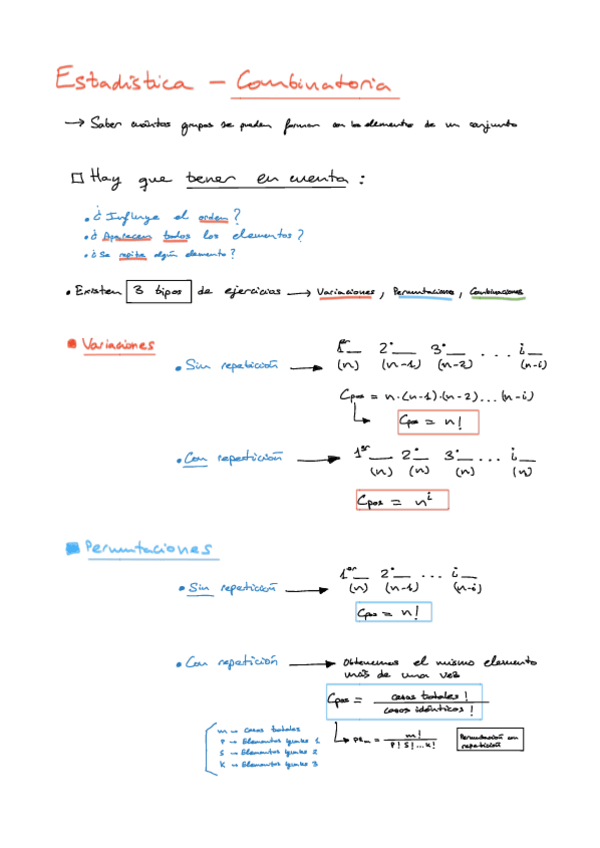 Estadística - Combinatoria
→ Saber cuántos grupos se pueden formar con los elementos de un conjunto
□ Hay que tener en cuenta :
• ¿ Influye el orden ?
• ¿ Aparecen todos los elementos ?
• ¿ Se repite algún elemento ?
• Existen 3 tipos de ejercicios → Variaciones , Permutaciones , Combinaciones
• Variaciones
• Sin repetición → 1er__ 2°__ 3°__ ... i__
(n) (n-1) (n-2) (n-i)
Cpos = n·(n-1)·(n-2)...(n-i)
Cpos = n!
• Con repetición → 1er__ 2°__ 3°__ ... i__
(n) (n) (n) (n)
Cpos = n^i
■ Permutaciones
• Sin repetición → 1er__ 2°__ ... i__
(n) (n-1) (n-i)
Cpos = n!
• Con repetición → Obtenemos el mismo elemento
más de una vez
Cpos = casos totales ! / casos idénticos !
m → Casos totales
P → Elementos iguales 1
S → Elementos iguales 2
K → Elementos iguales 3
PRm = m! / P! S! ... K!
Permutación con
repetición